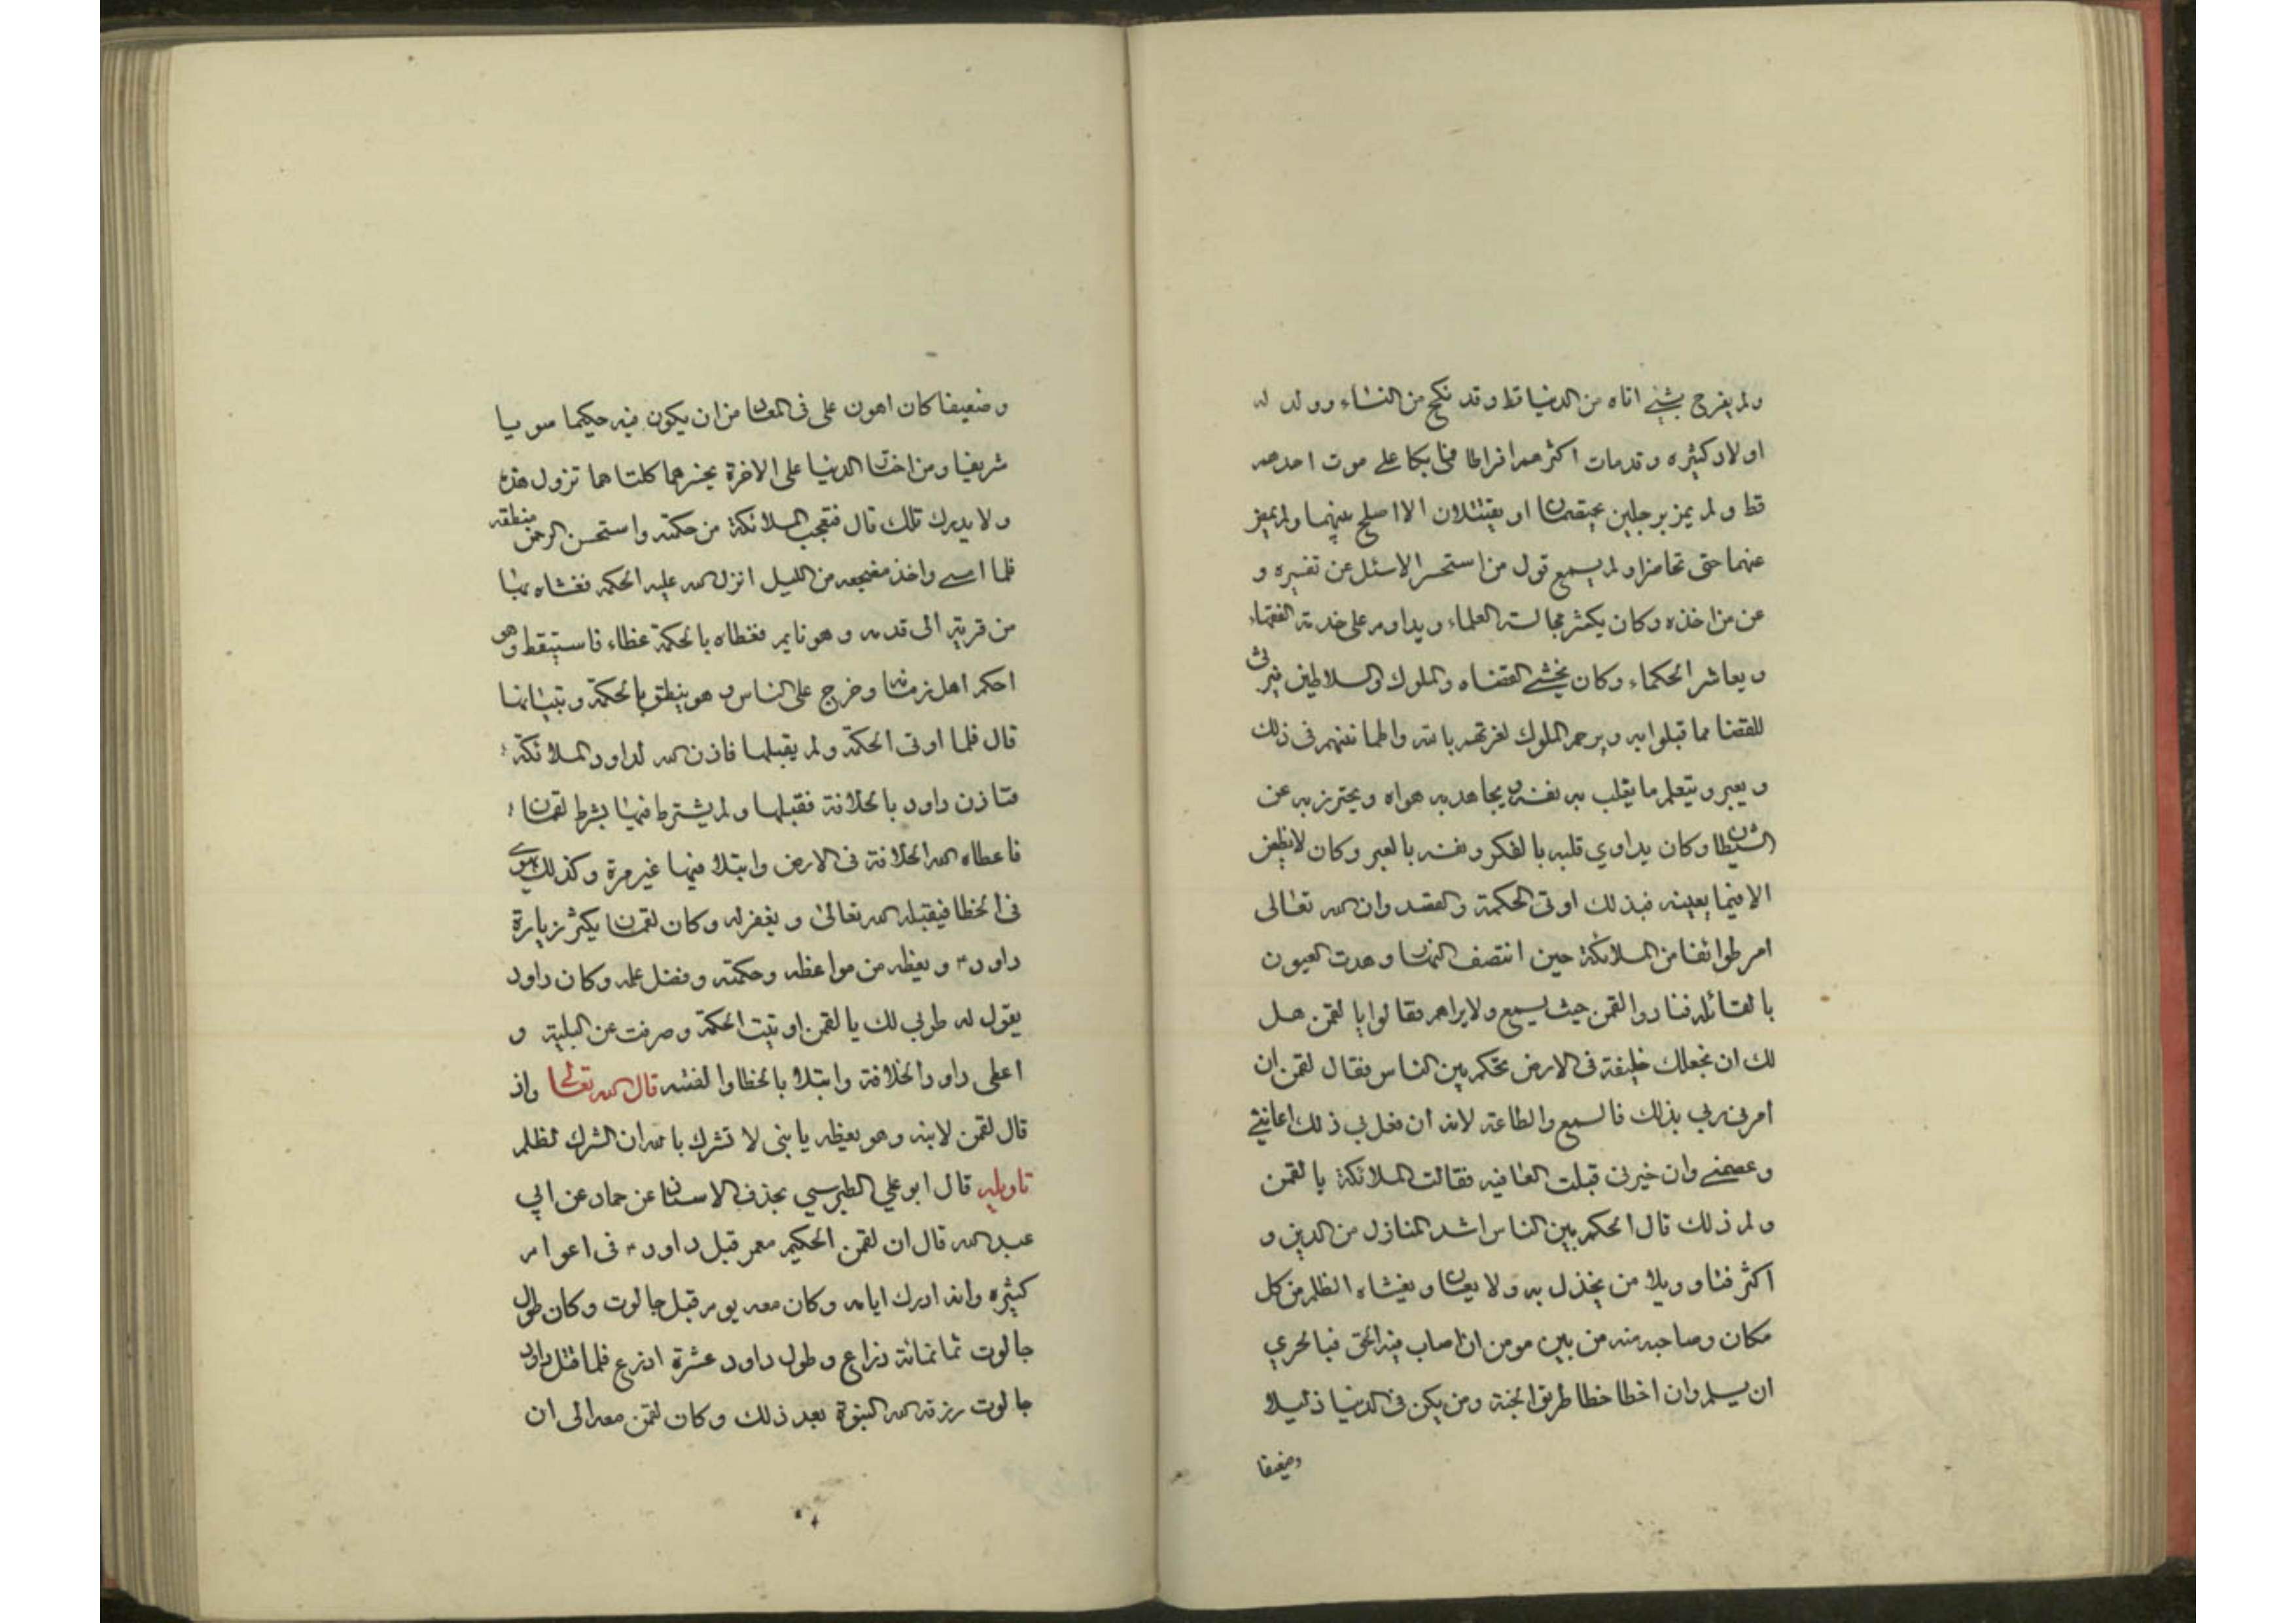 ولم يفرح بشيء اتاه من الدنيا قط وقد نكح من النساء وولد له
اولاد كثيره وقد مات اكثرهم افراطا فما بكا على موت احدهم
قط ولم يمز برجلين يختصمان او يقتتلان الا اصلح بينهما ولم يمض
عنهما حتى تحاضرا ولم يسمع قول من استحسر الا سئل عن تفسيره و
عن من اخذه وكان يكثر مجالسته العلماء ويداوم على خدمة الفقهاء
ويعاشر الحكماء وكان يخشى القضاه والملوك والسلاطين فيرثى
للقضا مما قبلوا به ويرحم الملوك لغرتهم بالله واطماننهم في ذلك
ويعبر ويتعلم ما يغلب به نفسه ويجاهد به هواه ويحترز به عن
الشيطان وكان يداوي قلبه بالفكر ونفسه بالعبر وكان لا يظعن
الا فيما يعينه فبذلك اوتى الحكمة والقصد وان الله تعالى
امر طوائفا من الملائكة حين انتصف النهار وهدت العيون
بالقائله فنادوا لقمن حيث يسمع ولا يراهم فقالوا يا لقمن هل
لك ان نجعلك خليفة في الارض تحكم بين الناس فقال لقمن ان
امرنى ربي بذلك فالسمع والطاعة لانه ان فعل بي ذلك اعاننى
وعصمنى وان خيرنى قبلت العافيه فقالت الملائكة يا لقمن
ولم ذلك قال الحكم بين الناس اشد المنازل من الدين و
اكثر فتنا وويلا من يخذل به ولا يعان ويغشاه الظلم من كل
مكان وصاحبه منه من بين مومن ان اصاب فيه الحق فبالحري
ان يسلم وان اخطا خطا طريق الجنة ومن يكن في الدنيا ذليلا
وضعيفا
وضعيفا كان اهون على في المعاد من ان يكون فيه حكيما سويا
شريفيا ومن اختار الدنيا على الاخرة يخسرهما كلتاهما تزول هذه
ولا يدرك تلك قال فتعجب الملائكة من حكمته واستحسن الرحمن منطقه
فلما امسى واخذ مضجعه من الليل انزل الله عليه الحكمه فغشاه بها
من قرنه الى قدمه وهو نايم فغطاه بالحكمة غطاء فاستيقظ وهو
احكم اهل زمانه وخرج على الناس وهو ينطق بالحكمة ويتبيانها
قال فلما اوتى الحكمة ولم يقبلها فاذن الله لداود الملائكة
فتاذن داود بالخلافة فقبلها ولم يشترط فيها بشرط لقمان
فاعطاه الله الخلافة في الارض وابتلا فيها غير مرة وكذلك يهوى
في الخطا فيقبله الله تعالى ويغفر له وكان لقمان يكثر زيارة
داود ؑ ويعظه من مواعظه وحكمته وفضل علمه وكان داود
يقول له طوبي لك يا لقمن اوتيت الحكمة وصرفت عن البلية و
اعطى داود الخلافة وابتلا بالخطا والفتنه قال الله تعالى واذ
قال لقمن لابنه وهو يعظه يا بنى لا تشرك بالله ان الشرك لظلم
تاويله قال ابو علي الطبرسي بحذف الاسناد عن حماد عن ابي
عبد الله قال ان لقمن الحكيم معمر قبل داود ؑ في اعوام
كثيره وانه ادرك ايامه وكان معه يوم قتل جالوت وكان طول
جالوت ثمانمائة ذراع وطول داود عشرة اذرع فلما قتل داود
جالوت رزقه الله النبوة بعد ذلك وكان لقمن معه الى ان